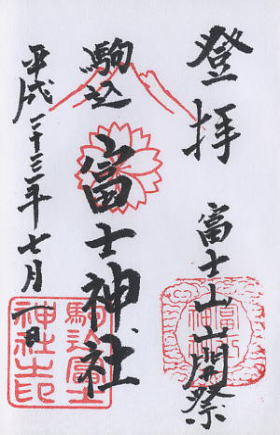 登拝
富士山山開祭
駒込
富士神社
平成二十三年七月一日
駒込富士
神社之印